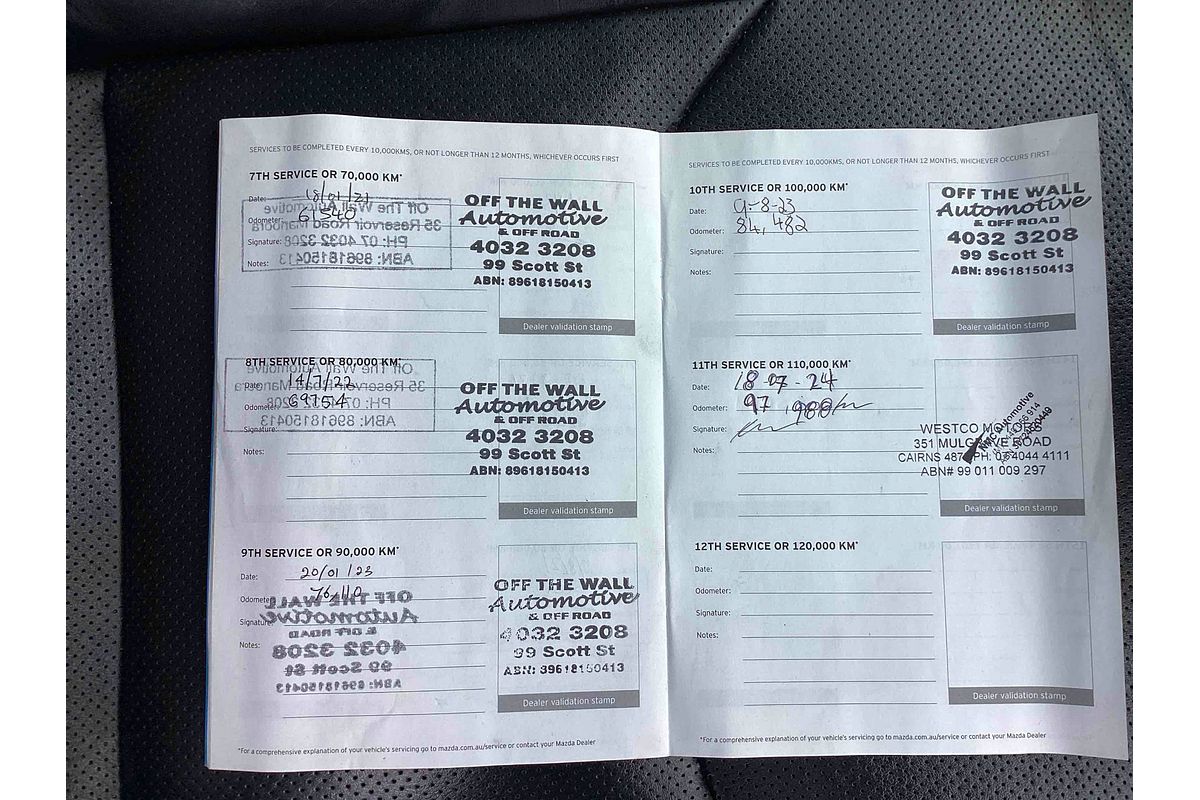 SERVICES TO BE COMPLETED EVERY 10,000KMS, OR NOT LONGER THAN 12 MONTHS, WHICHEVER OCCURS FIRST
7TH SERVICE OR 70,000 KM*
Date: 18/01/21
Odometer: 61340
Signature:
Notes:
Off The Wall Automotive
35 Reservoir Road Manoora
PH: 07 4032 3208
ABN: 89618150413
OFF THE WALL
Automotive
& OFF ROAD
4032 3208
99 Scott St
ABN: 89618150413
Dealer validation stamp
8TH SERVICE OR 80,000 KM*
Date: 14/7/22
Odometer: 69754
Signature:
Notes:
Off The Wall Automotive
35 Reservoir Road Manoora
PH: 07 4032 3208
ABN: 89618150413
OFF THE WALL
Automotive
& OFF ROAD
4032 3208
99 Scott St
ABN: 89618150413
Dealer validation stamp
9TH SERVICE OR 90,000 KM*
Date: 20/01/23
Odometer: 76,110
Signature:
Notes:
OFF THE WALL
Automotive
& OFF ROAD
4032 3208
99 Scott St
ABN: 89618150413
OFF THE WALL
Automotive
& OFF ROAD
4032 3208
99 Scott St
ABN: 89618150413
Dealer validation stamp
*For a comprehensive explanation of your vehicle's servicing go to mazda.com.au/service or contact your Mazda Dealer
SERVICES TO BE COMPLETED EVERY 10,000KMS, OR NOT LONGER THAN 12 MONTHS, WHICHEVER OCCURS FIRST
10TH SERVICE OR 100,000 KM*
Date: 9-8-23
Odometer: 84,482
Signature:
Notes:
OFF THE WALL
Automotive
& OFF ROAD
4032 3208
99 Scott St
ABN: 89618150413
Dealer validation stamp
11TH SERVICE OR 110,000 KM*
Date: 18-07-24
Odometer: 97,988
Signature:
Notes:
WESTCO MOTORS
351 MULGRAVE ROAD
CAIRNS 487 PH: 07 4044 4111
ABN# 99 011 009 297
Automotive
Dealer validation stamp
12TH SERVICE OR 120,000 KM*
Date:
Odometer:
Signature:
Notes:
Dealer validation stamp
*For a comprehensive explanation of your vehicle's servicing go to mazda.com.au/service or contact your Mazda Dealer